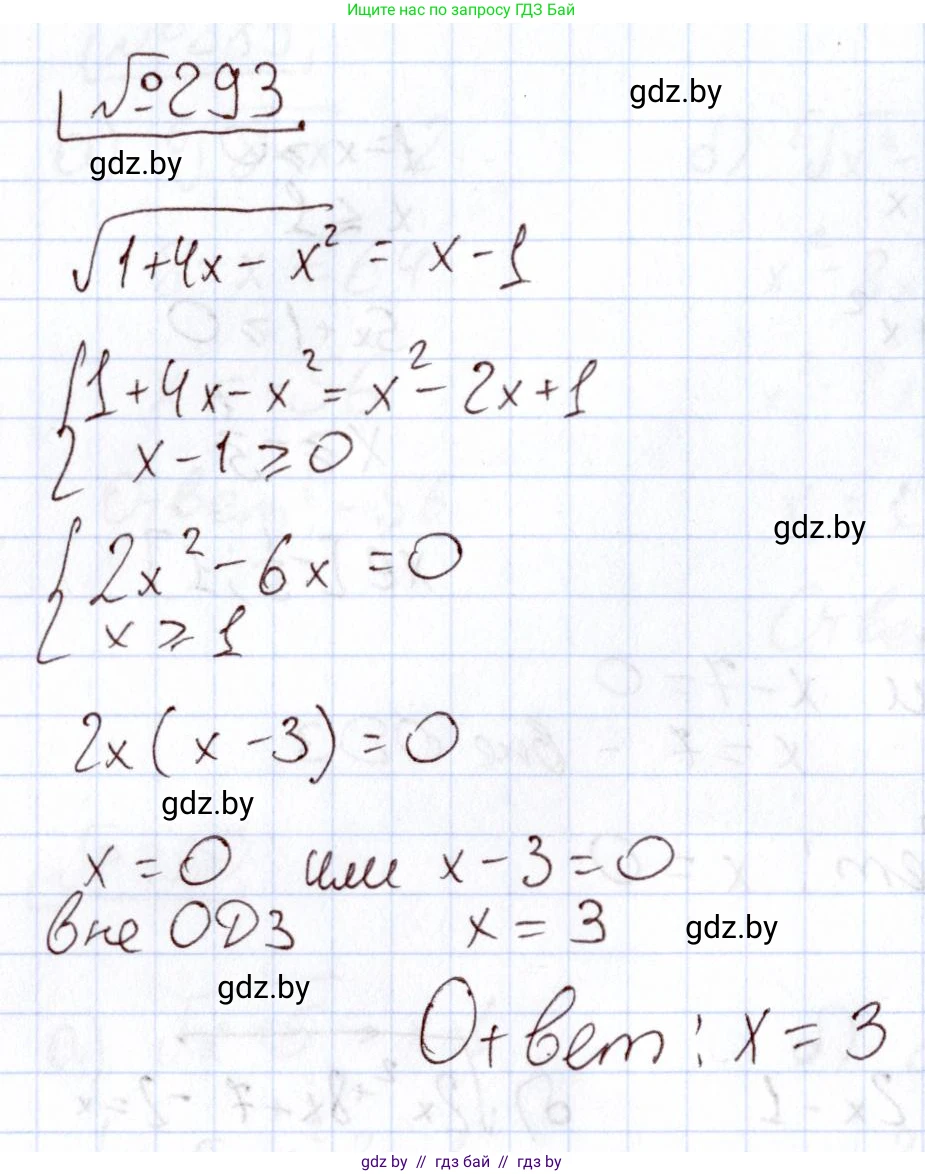 Ищите нас по запросу ГДЗ Бай
№293
gdz.by
gdz.by
√(1+4x-x²) = x-1
{1+4x-x²=x²-2x+1
x-1≥0
{2x²-6x=0
gdz.by
x≥1
2x(x-3)=0
gdz.by
x=0 или x-3=0
вне ОДЗ x=3
gdz.by
gdz.by
Ответ: x=3
gdz.by // гдз бай // гдз by